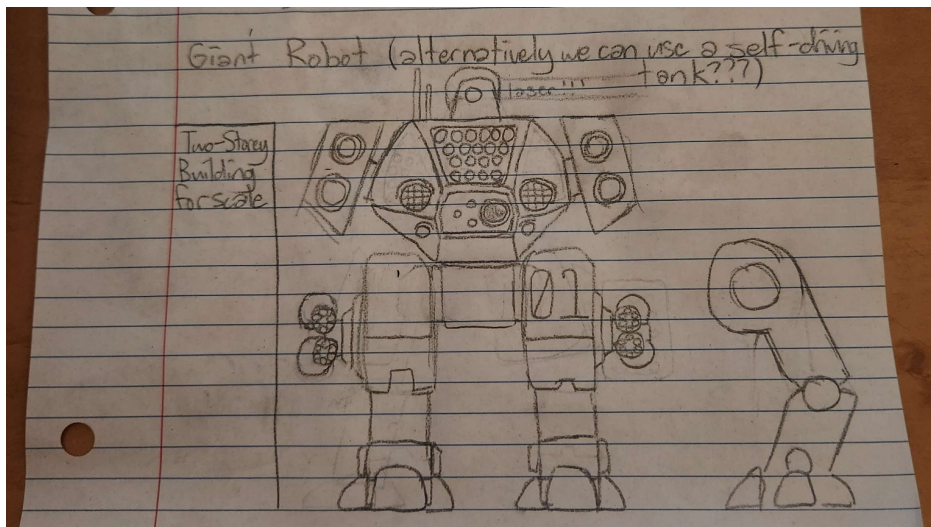 Giant Robot (alternatively we can use a self-driving
tank???)
laser!!!
Two-Storey
Building
for scale
01